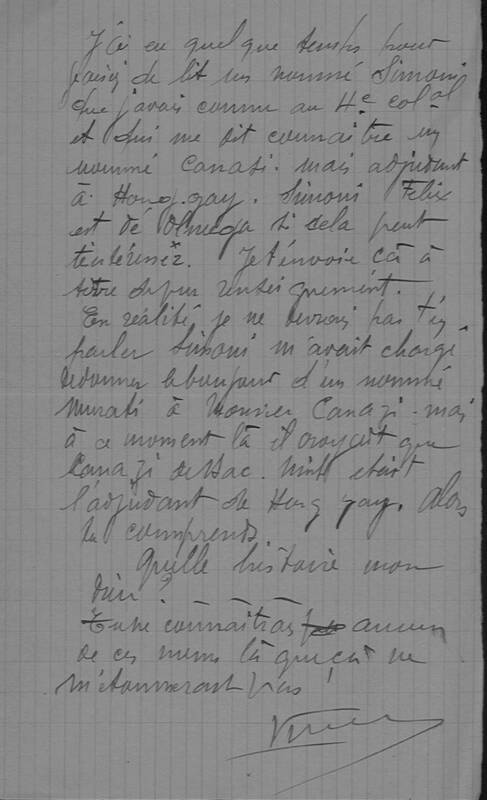 J'ai eu quelque temps pour
voisin de lit un nommé Simoni
que j'avais connu au 4e col al
et qui me dit connaître un
nommé Canazi. mais adjudant
à Hong-gay. Simoni Felix
est de Olmeta si cela peut
t'intéresser. Je t'envoie ça à
titre de pur renseignement.
En réalité je ne devrais pas t'en
parler Simoni m'avait chargé
de donner le bonjour d'un nommé
Murati à Monsieur Canazi - mais
à ce moment là il croyait que
Canazi de Bac. Ninh etait
l'adjudant de Hong gay. Alors
tu comprends
Quelle histoire mon
dieu ?
Tu ne connaîtras aucun
de ces noms là que ça ne
m'étonnerait pas !